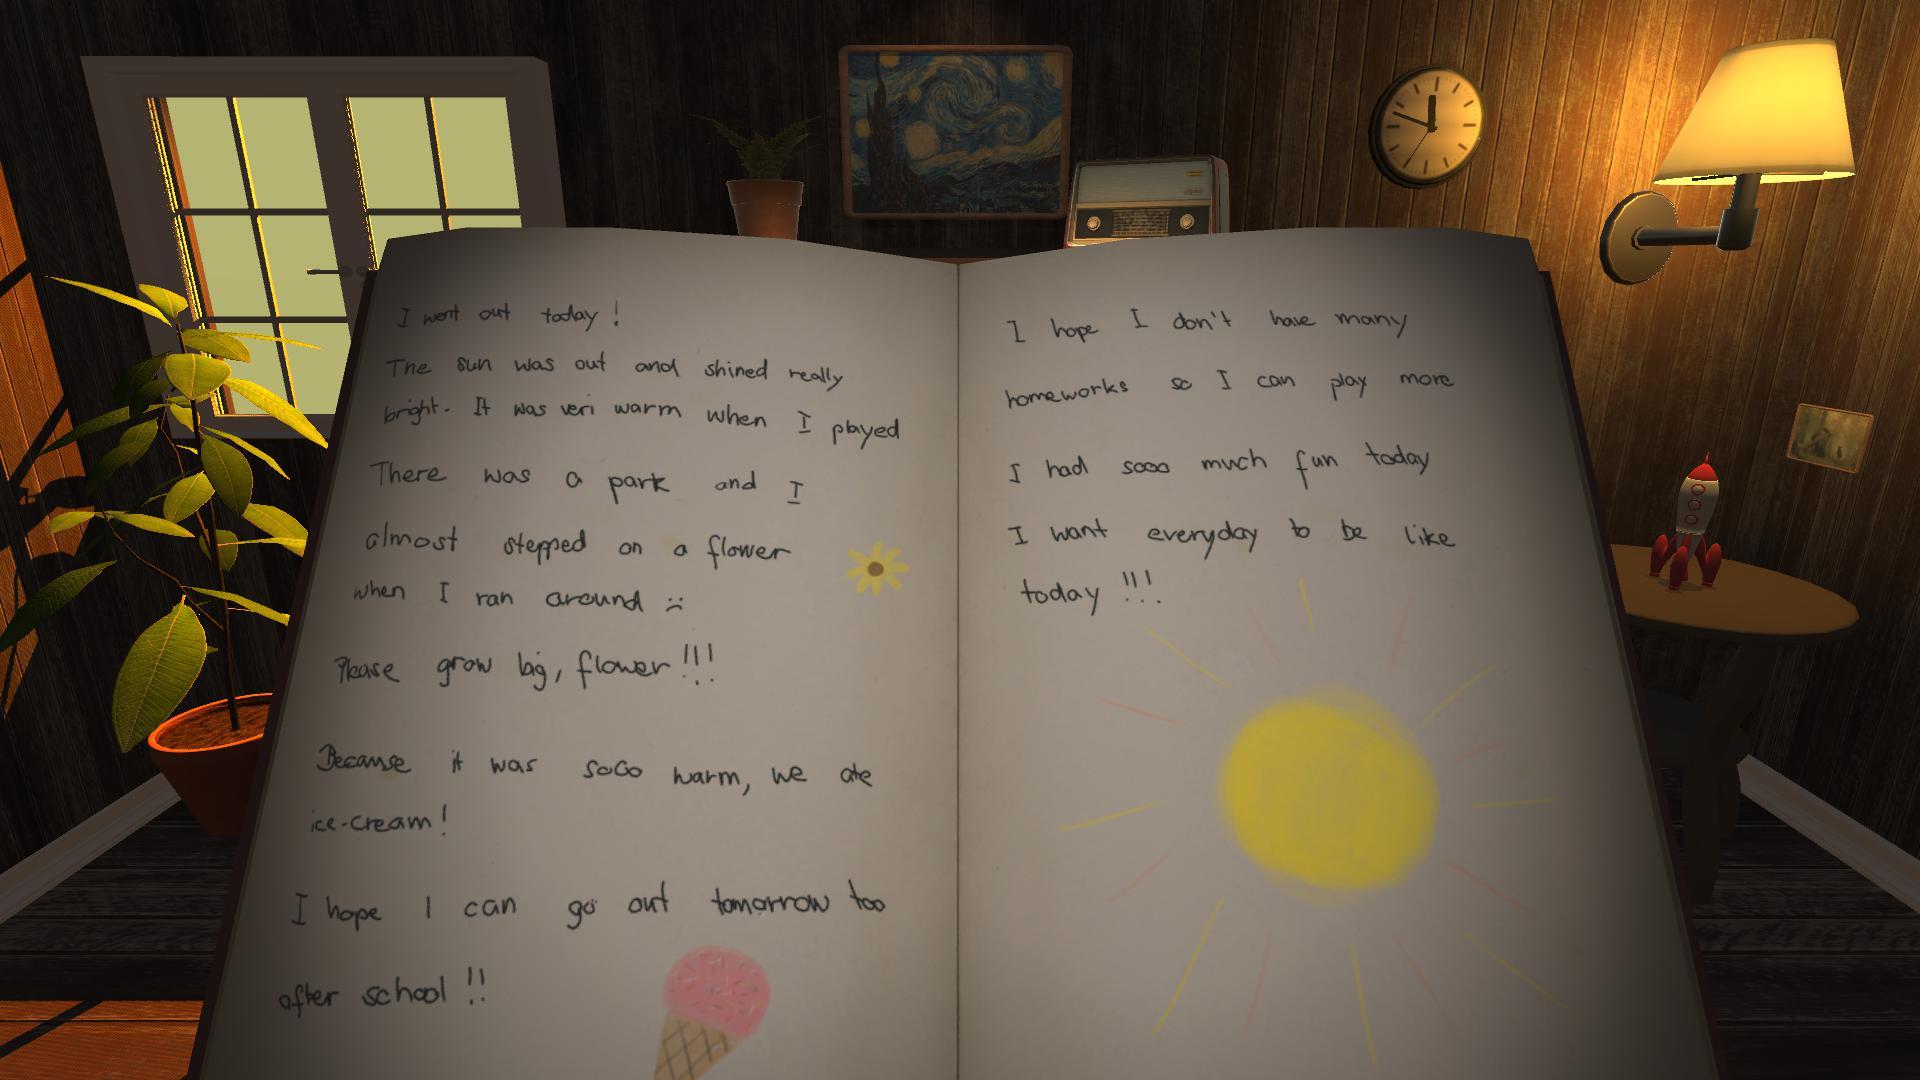 I went out today!
The sun was out and shined really
bright. It was veri warm when I played
There was a park and I
almost stepped on a flower
when I ran around :(
Please grow big, flower!!!
Because it was soooo warm, we ate
ice-cream!
I hope I can go out tomorrow too
after school!!
I hope I don't have many
homeworks so I can play more
I had sooo much fun today
I want everyday to be like
today!!!